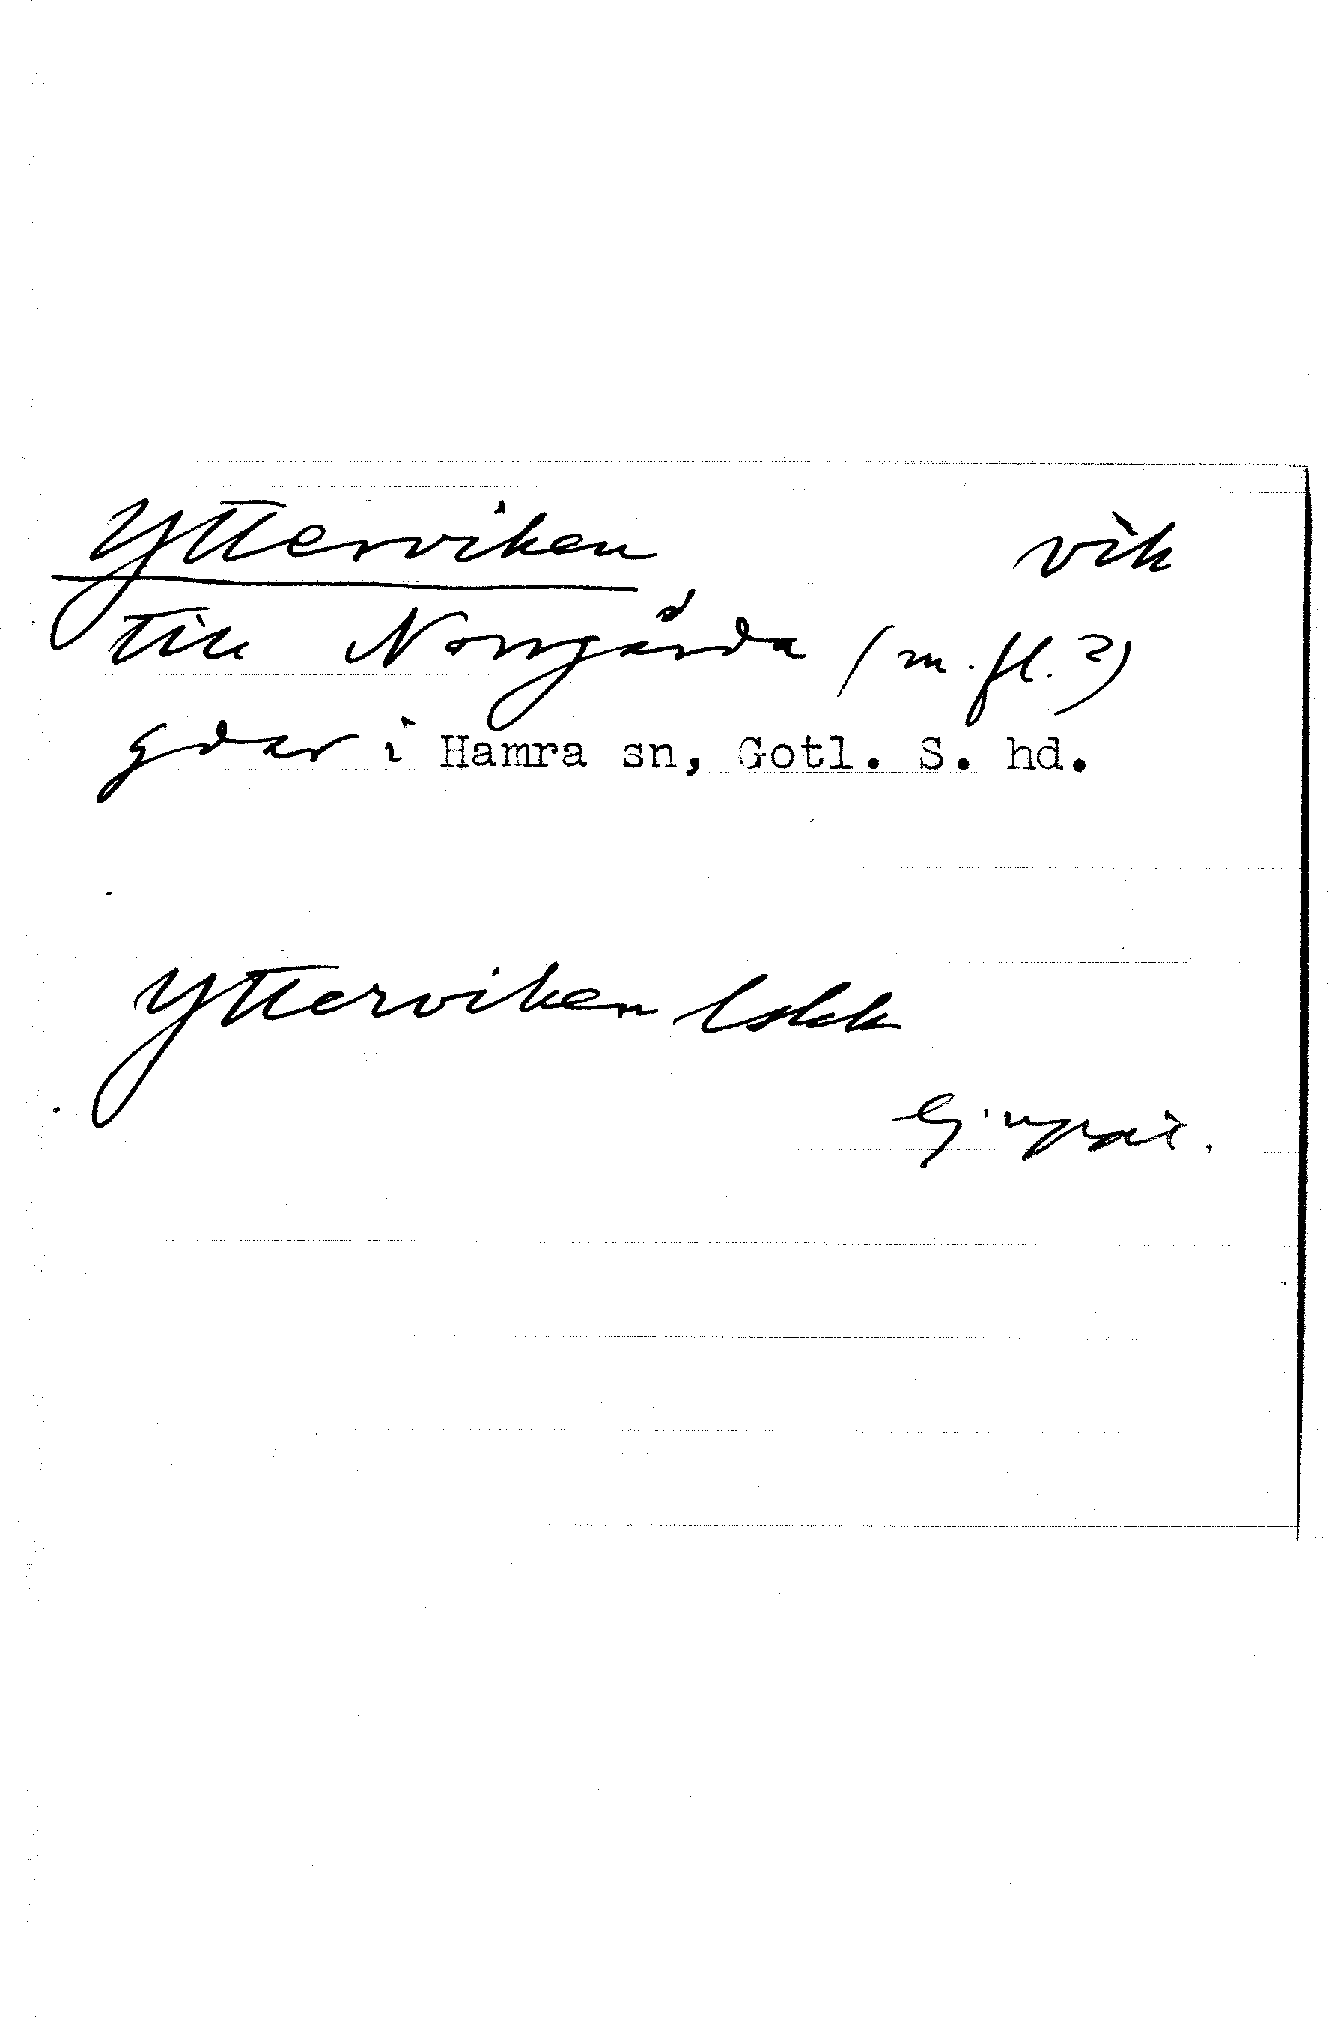 Ytterviken vik
till Norrgårda (m.fl.?)
gdar i Hamra sn, Gotl. S. hd.
Ytterviken
Ej uppr.